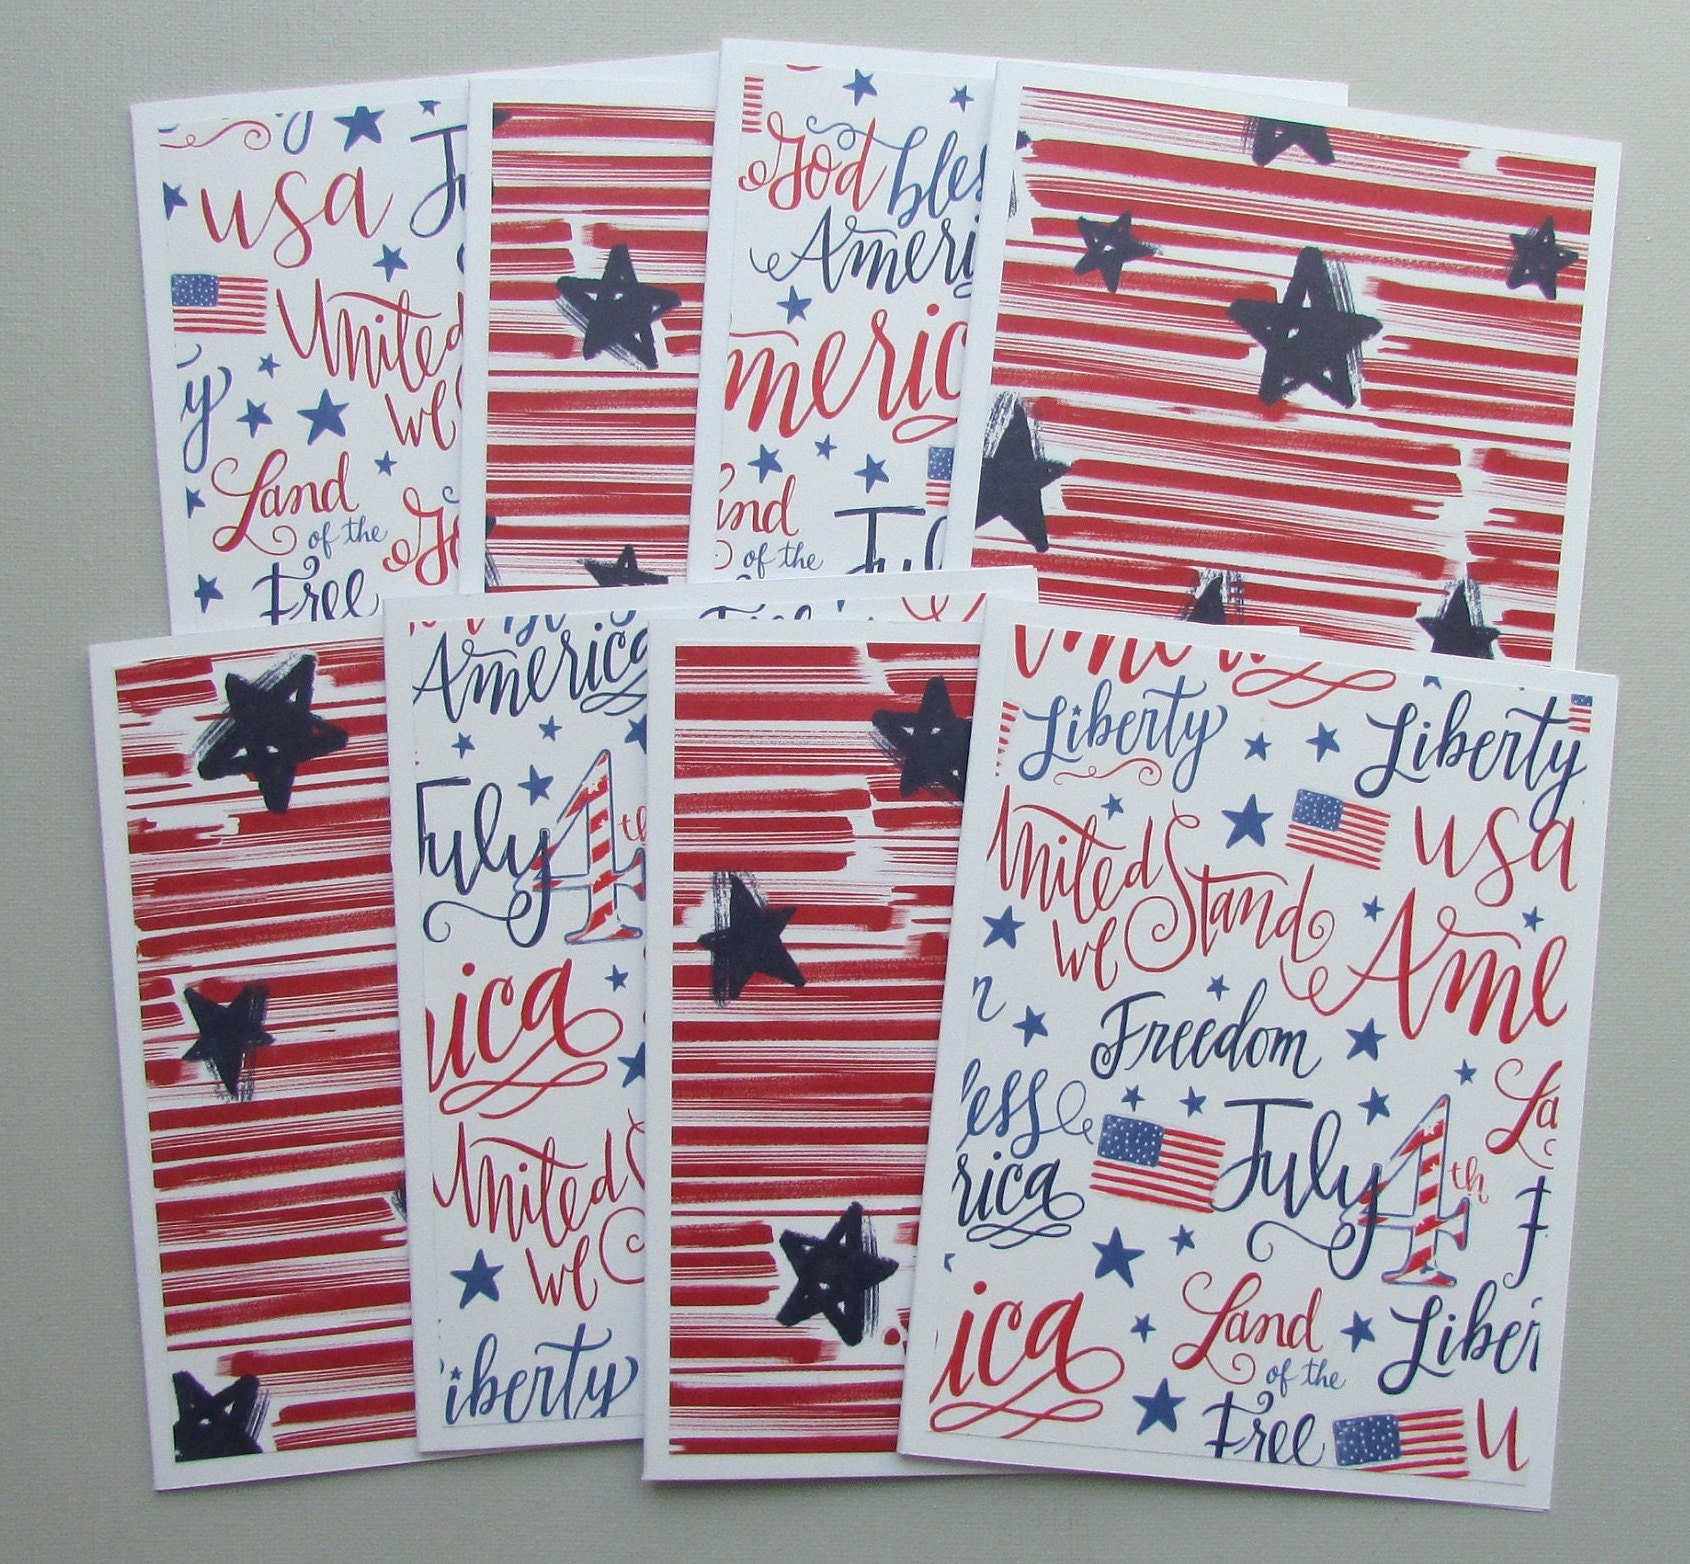 usa
United
we
Land
of the
Free
God bless
America
America
Land
of the
July
America
July 4th
America
United
we
Liberty
Liberty
Liberty
United
we Stand
usa
Freedom
bless
America
July 4th
Land
of the
Free